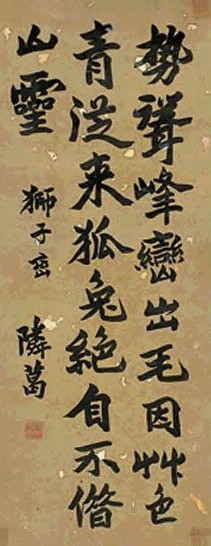 勢聳峰巒出毛因艸色
青從来狐兔絕自不
山靈
獅子峦
隣葛